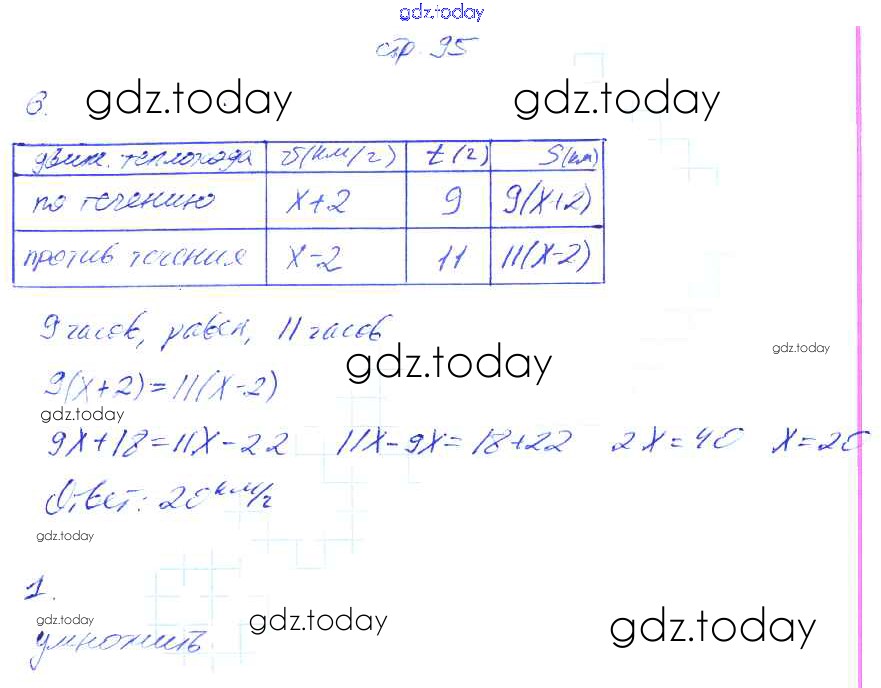 gdz.today
стр. 95
6. gdz.today gdz.today
движ. теплохода v(км/ч) t(ч) S(км)
по течению x+2 9 9(x+2)
против течения x-2 11 11(x-2)
9 часов, равен, 11 часов
gdz.today gdz.today
9(x+2)=11(x-2)
gdz.today
9x+18=11x-22 11x-9x=18+22 2x=40 x=20
Ответ: 20 км/ч
gdz.today
1.
gdz.today gdz.today gdz.today
умножить